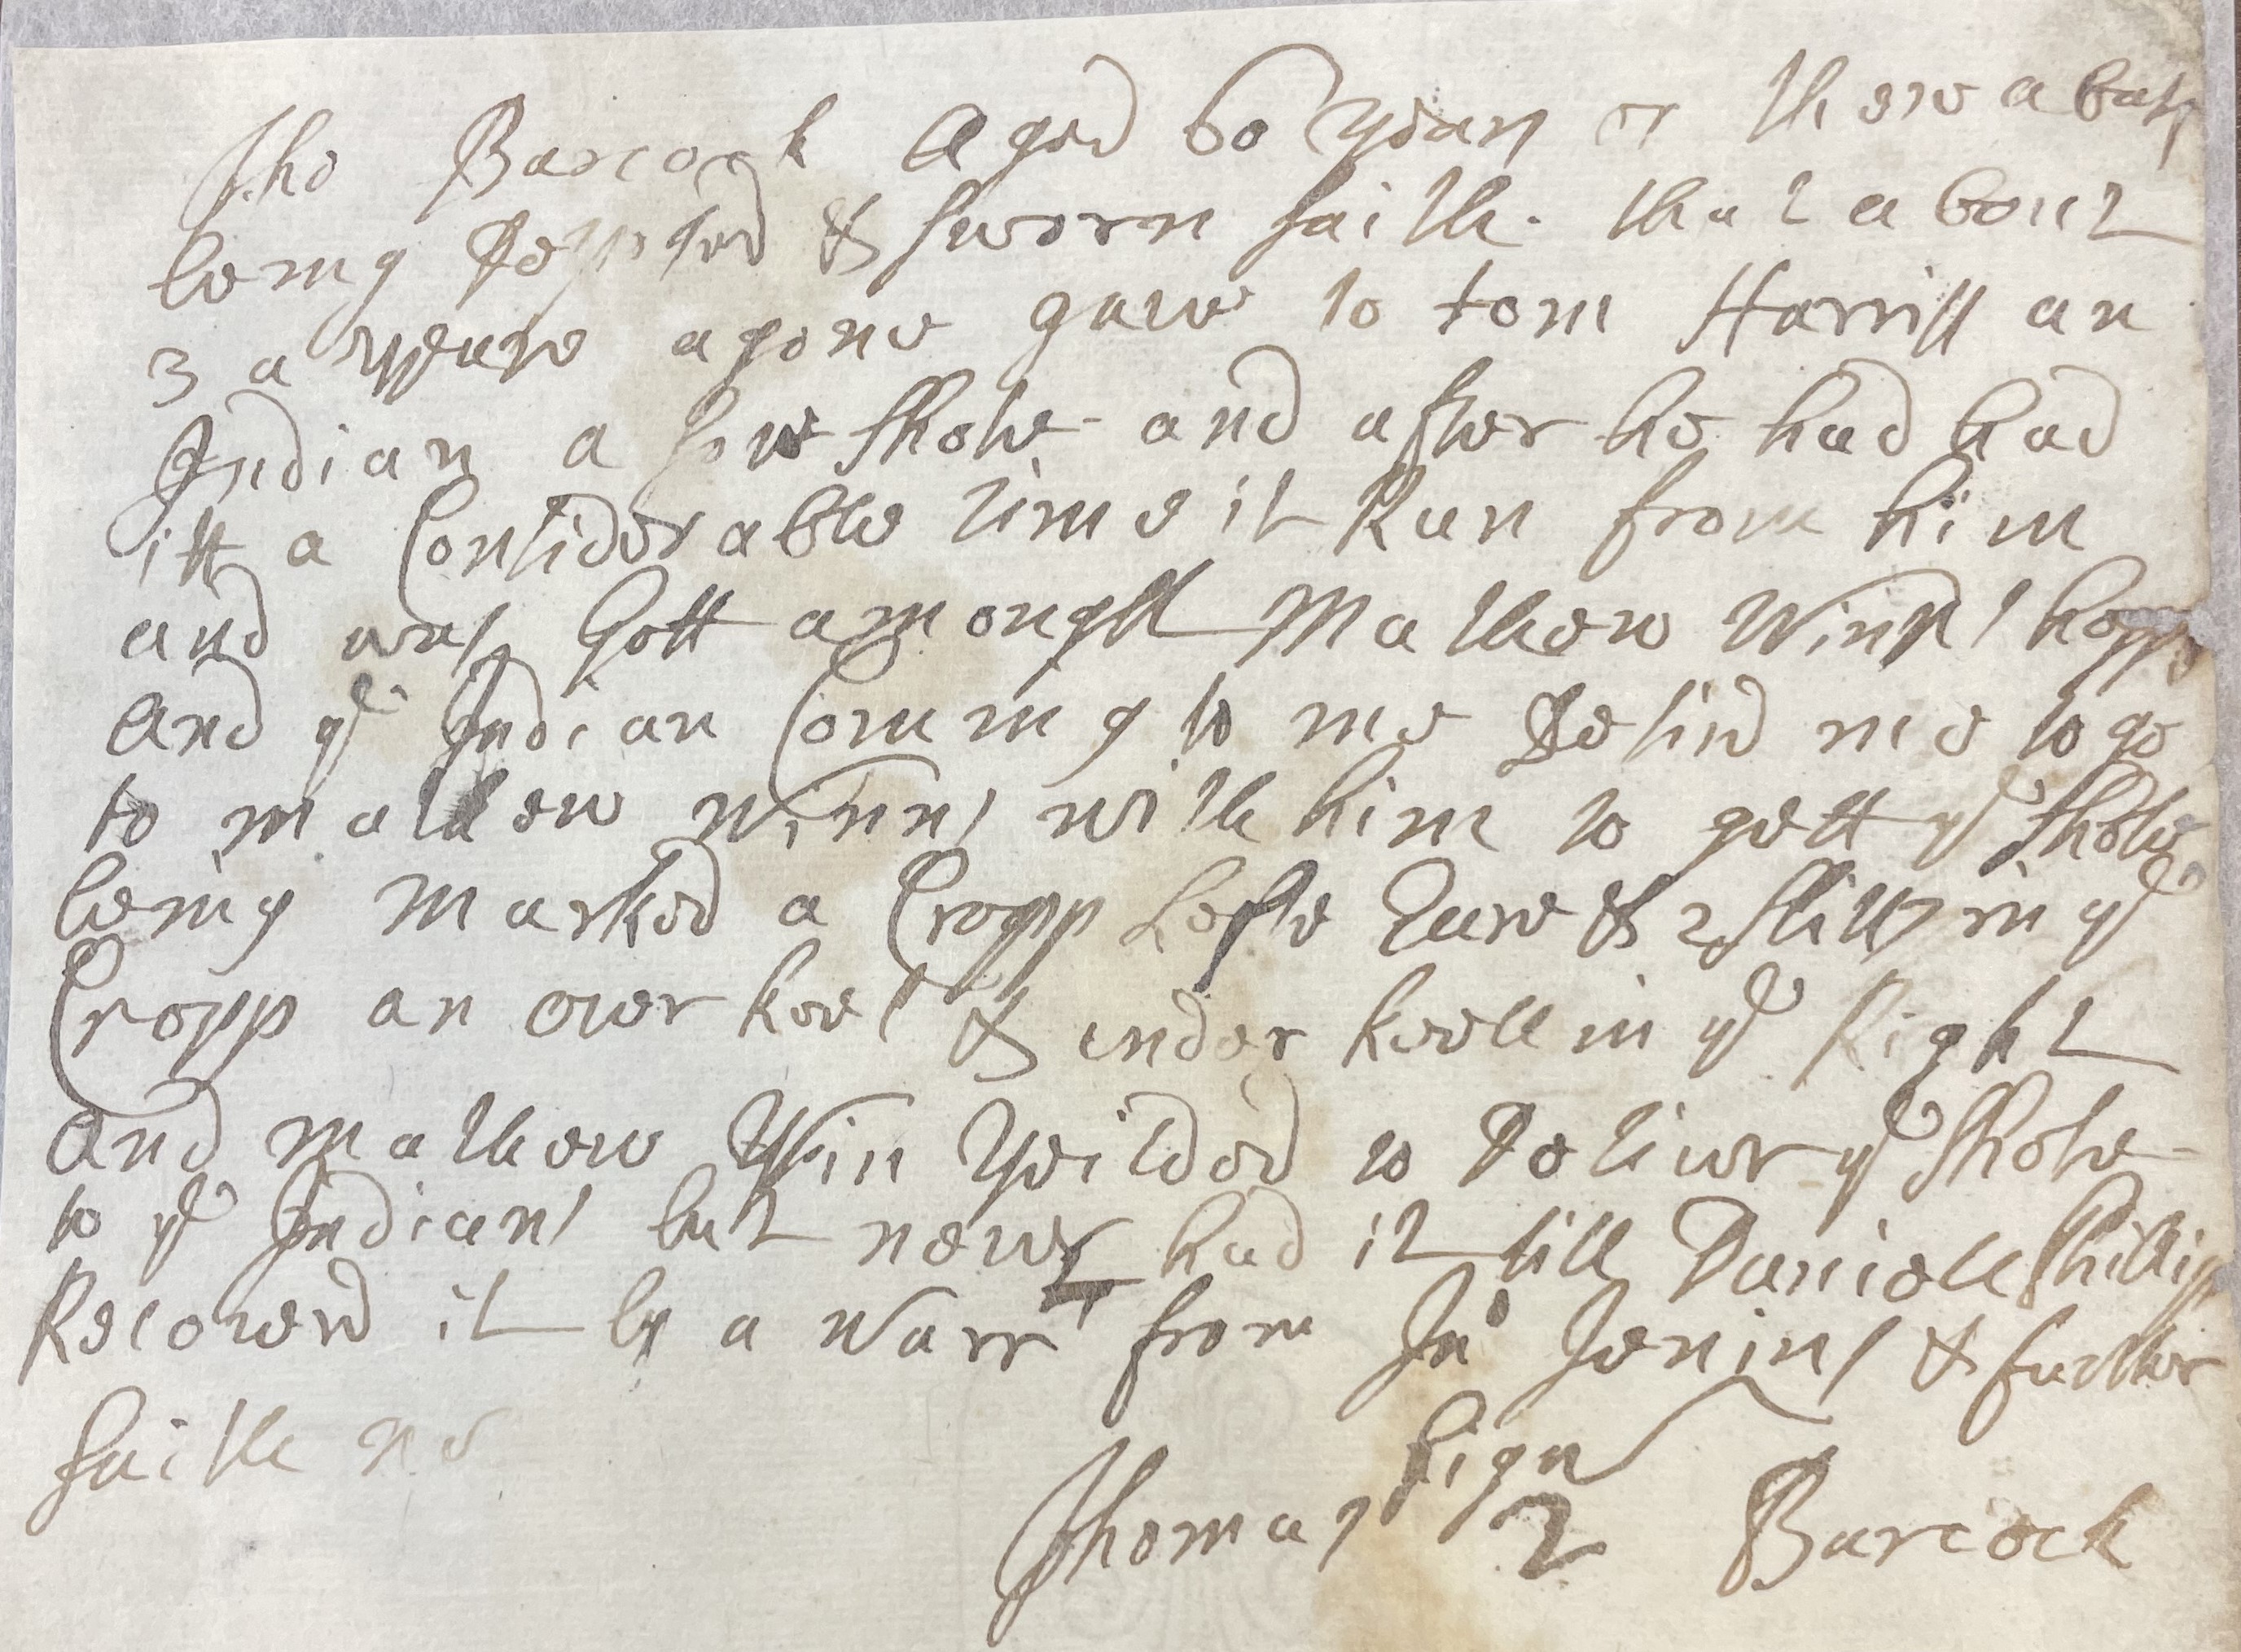 Tho Barcock Aged 60 Years or thereabouts
being Deposed & sworn saith that about
3 a Yeare agone gave to tom Harriss an
Indian a sow Shote and after he had had
itt a Considerable time it Run from him
and was Gott amongst Mathew Winns hoggs
And ye Indian Coming to me Desired me to go
to mathew Winns with him to gett ye Shote
being Marked a Cropp Lefte Eare & 2 slitts in ye
Cropp an over keel & under keell in ye Right
And mathew Win Yeilded to Deliver ye Shote
to ye Indian but never had it till Daniell Phillips
Recovered it by a Warrt from Jno Jenins & further
saith no
sign
Thomas 2 Barcock